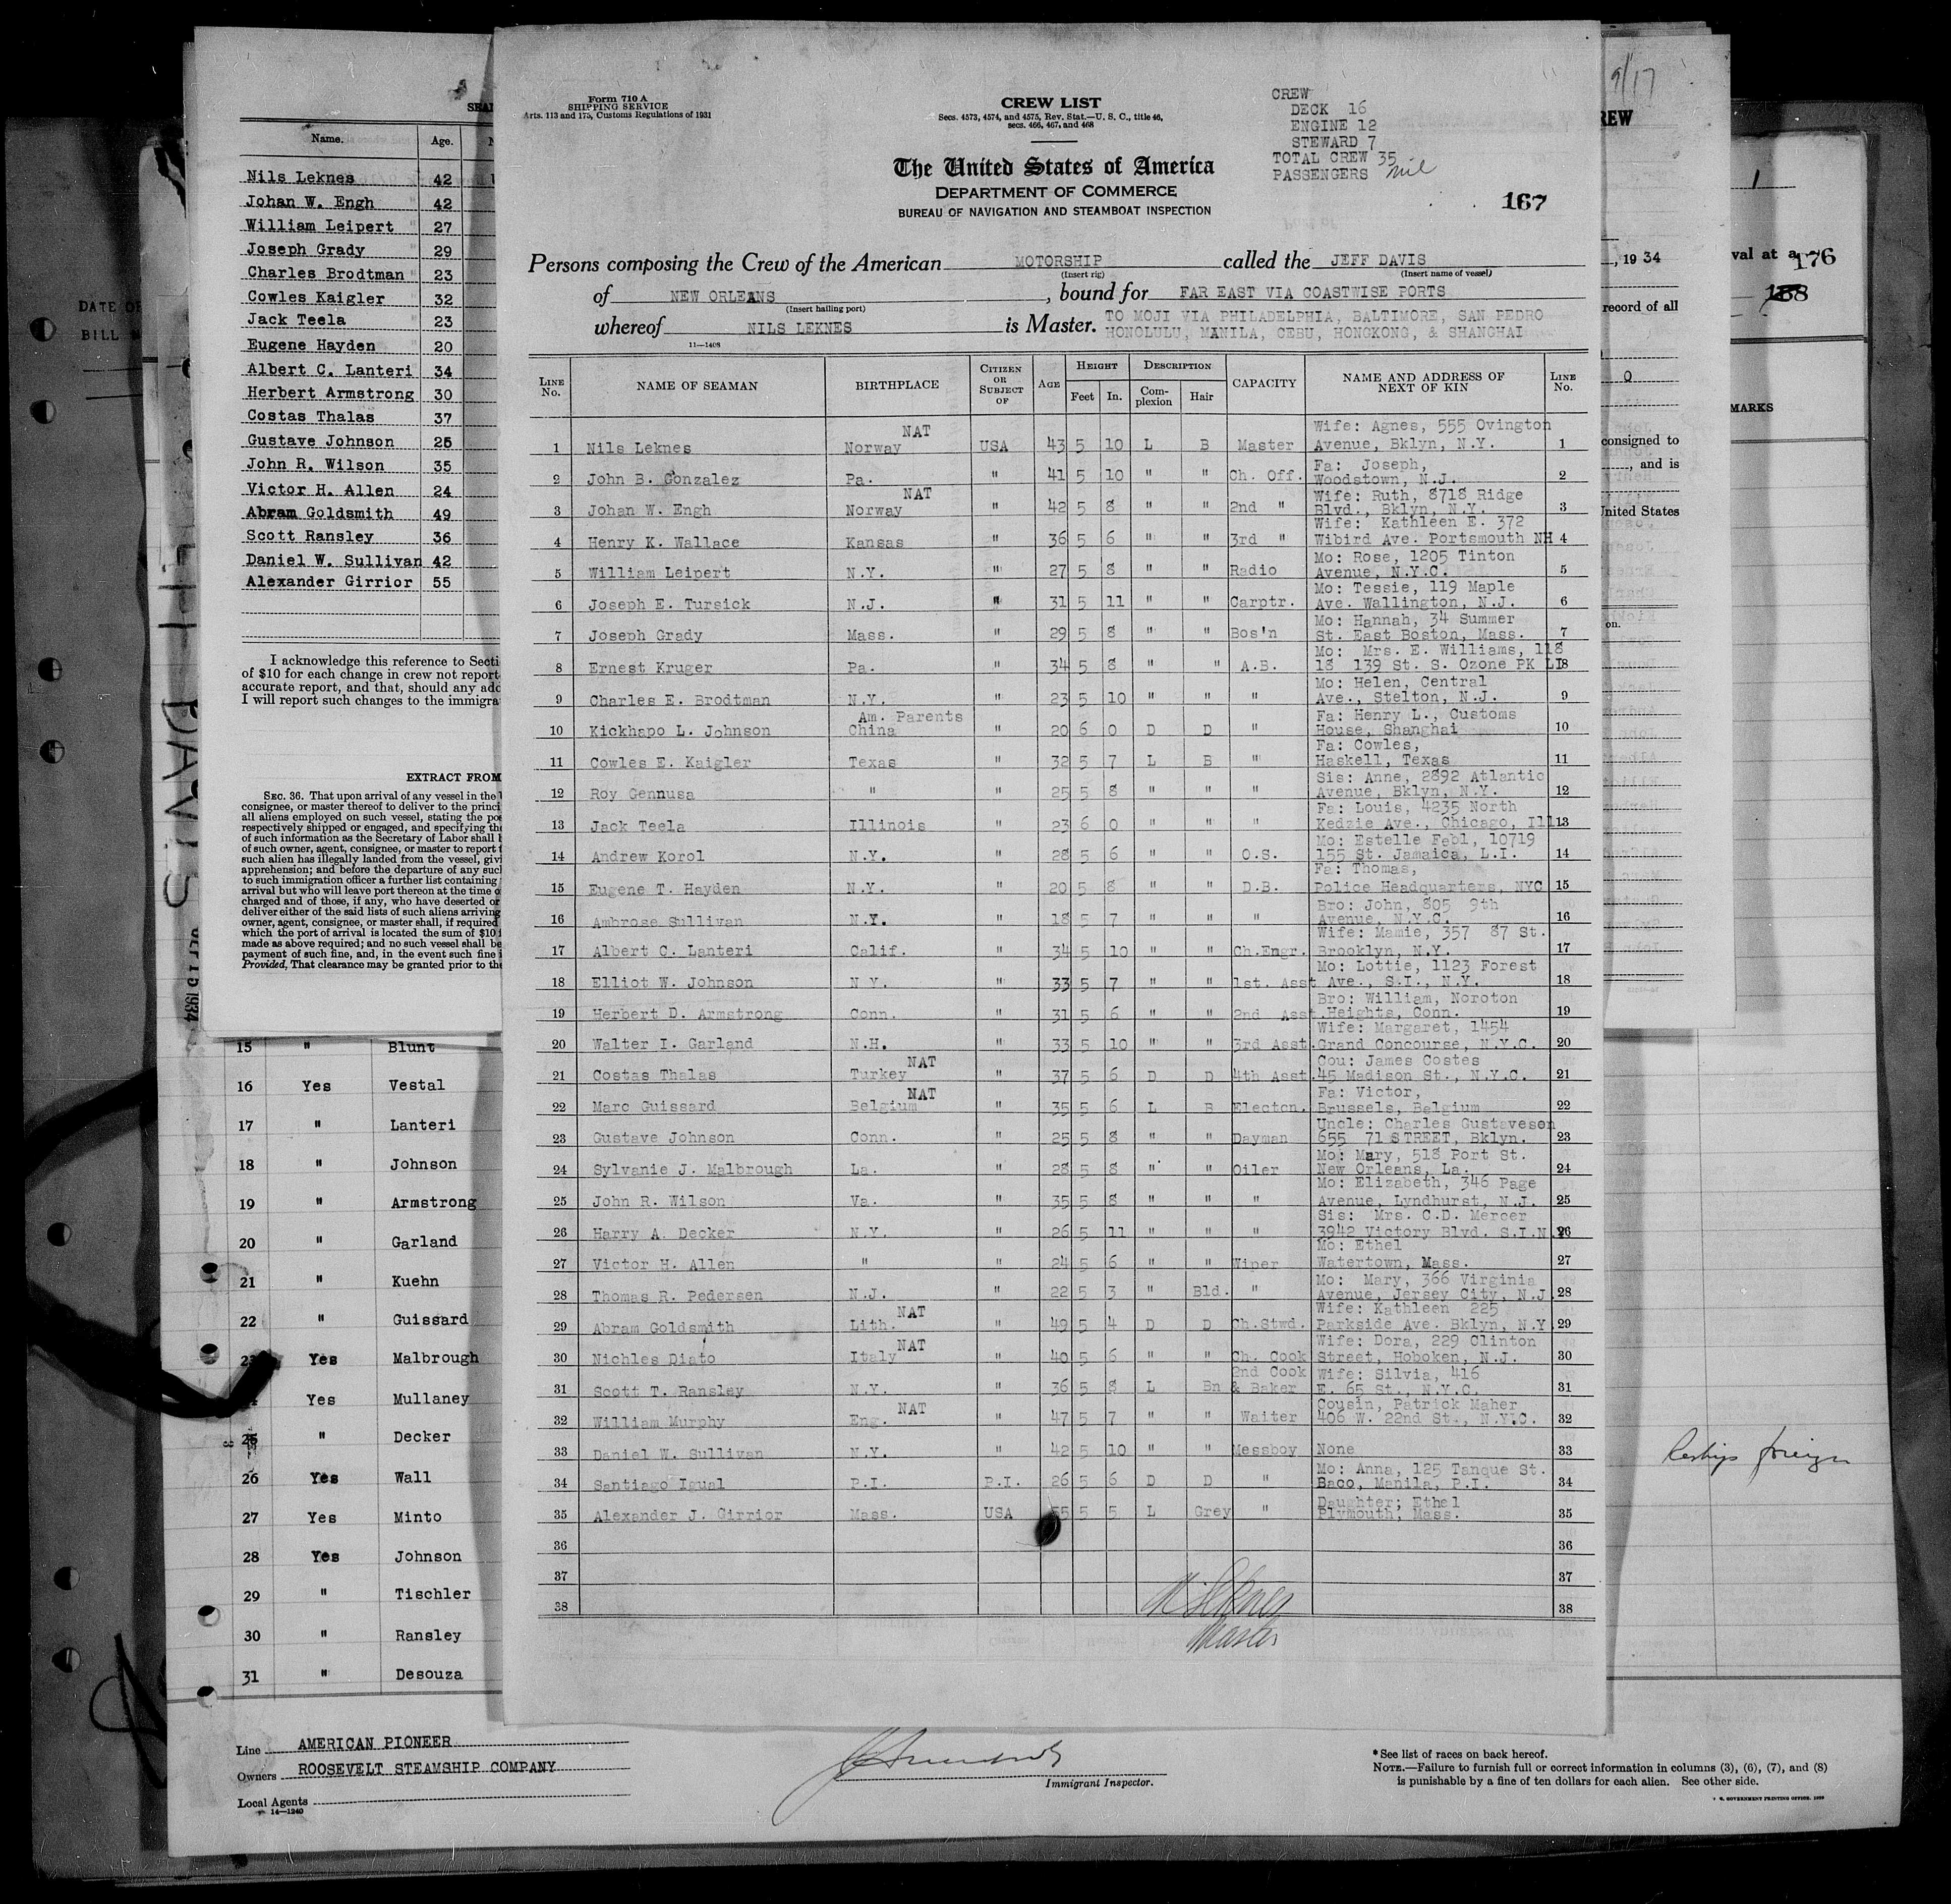 Form 710 A
SHIPPING SERVICE
Arts. 113 and 175, Customs Regulations of 1931
CREW LIST
Secs. 4573, 4574, and 4575, Rev. Stat.—U. S. C., title 46,
secs. 466, 467, and 468
The United States of America
DEPARTMENT OF COMMERCE
BUREAU OF NAVIGATION AND STEAMBOAT INSPECTION
CREW
DECK 16
ENGINE 12
STEWARD 7
TOTAL CREW 35
PASSENGERS Nil
167
Persons composing the Crew of the American MOTORSHIP called the JEFF DAVIS
(Insert rig) (Insert name of vessel)
of NEW ORLEANS , bound for FAR EAST VIA COASTWISE PORTS
(Insert hailing port)
whereof NILS LEKNES is Master. TO MOJI VIA PHILADELPHIA, BALTIMORE, SAN PEDRO
HONOLULU, MANILA, CEBU, HONGKONG, & SHANGHAI
11—1408
LINE No. NAME OF SEAMAN BIRTHPLACE CITIZEN OR SUBJECT OF AGE HEIGHT Feet In. DESCRIPTION Complexion Hair CAPACITY NAME AND ADDRESS OF NEXT OF KIN LINE No.
NAT Wife: Agnes, 555 Ovington
1 Nils Leknes Norway USA 43 5 10 L B Master Avenue, Bklyn, N.Y. 1
Fa: Joseph,
2 John B. Gonzalez Pa. " 41 5 10 " " Ch. Off. Woodstown, N.J. 2
NAT Wife: Ruth, 8718 Ridge
3 Johan W. Engh Norway " 42 5 8 " " 2nd " Blvd., Bklyn, N.Y. 3
Wife: Kathleen E. 372
4 Henry K. Wallace Kansas " 36 5 6 " " 3rd " Wibird Ave. Portsmouth NH 4
Mo: Rose, 1205 Tinton
5 William Leipert N.Y. " 27 5 8 " " Radio Avenue, N.Y.C. 5
Mo: Tessie, 119 Maple
6 Joseph E. Tursick N.J. " 31 5 11 " " Carptr. Ave. Wallington, N.J. 6
Mo: Hannah, 34 Summer
7 Joseph Grady Mass. " 29 5 8 " " Bos'n St. East Boston, Mass. 7
Mo: Mrs. E. Williams, 118
8 Ernest Kruger Pa. " 34 5 8 " " A.B. 18 139 St. S. Ozone PK LI 8
Mo: Helen, Central
9 Charles E. Brodtman N.Y. " 23 5 10 " " " Ave., Stelton, N.J. 9
Am. Parents Fa: Henry L., Customs
10 Kickhapo L. Johnson China " 20 6 0 D D " House, Shanghai 10
Fa: Cowles,
11 Cowles E. Kaigler Texas " 32 5 7 L B " Haskell, Texas 11
Sis: Anne, 2892 Atlantic
12 Roy Gennusa " " 25 5 8 " " " Avenue, Bklyn, N.Y. 12
Fa: Louis, 4235 North
13 Jack Teela Illinois " 23 6 0 " " " Kedzie Ave., Chicago, Ill 13
Mo: Estelle Febl, 10719
14 Andrew Korol N.Y. " 28 5 6 " " O.S. 155 St. Jamaica, L.I. 14
Fa: Thomas,
15 Eugene T. Hayden N.Y. " 20 5 8 " " D.B. Police Headquarters, NYC 15
Bro: John, 805 9th
16 Ambrose Sullivan N.Y. " 18 5 7 " " " Avenue, N.Y.C. 16
Wife: Mamie, 357 87 St.
17 Albert C. Lanteri Calif. " 34 5 10 " " Ch.Engr. Brooklyn, N.Y. 17
Mo: Lottie, 1123 Forest
18 Elliot W. Johnson N Y. " 33 5 7 " " 1st. Asst Ave., S.I., N.Y. 18
Bro: William, Noroton
19 Herbert D. Armstrong Conn. " 31 5 6 " " 2nd Asst. Heights, Conn. 19
Wife: Margaret, 1454
20 Walter I. Garland N.H. " 33 5 10 " " 3rd Asst. Grand Concourse, N.Y.C. 20
NAT Cou: James Costes
21 Costas Thalas Turkey " 37 5 6 D D 4th Asst. 45 Madison St., N.Y.C. 21
NAT Fa: Victor,
22 Marc Guissard Belgium " 35 5 6 L B Electcn. Brussels, Belgium 22
Uncle: Charles Gustaveson
23 Gustave Johnson Conn. " 25 5 8 " " Dayman 655 71 STREET, Bklyn. 23
Mo: Mary, 518 Port St.
24 Sylvanie J. Malbrough La. " 28 5 8 " " Oiler New Orleans, La. 24
Mo: Elizabeth, 346 Page
25 John R. Wilson Va. " 35 5 8 " " " Avenue, Lyndhurst, N.J. 25
Sis: Mrs. C.D. Mercer
26 Harry A. Decker N.Y. " 26 5 11 " " " 3942 Victory Blvd. S.I.N.Y. 26
Mo: Ethel
27 Victor H. Allen " " 24 5 6 " " Wiper Watertown, Mass. 27
Mo: Mary, 366 Virginia
28 Thomas R. Pedersen N.J. " 22 5 3 " Bld. " Avenue, Jersey City, N.J. 28
NAT Wife: Kathleen 225
29 Abram Goldsmith Lith. " 49 5 4 D D Ch.Stwd. Parkside Ave. Bklyn, N.Y 29
NAT Wife: Dora, 229 Clinton
30 Nichles Diato Italy " 40 5 6 " " Ch. Cook Street, Hoboken, N.J. 30
2nd Cook Wife: Silvia, 416
31 Scott T. Ransley N.Y. " 36 5 8 L Bn & Baker E. 65 St., N.Y.C. 31
NAT Cousin, Patrick Maher
32 William Murphy Eng. " 47 5 7 " " Waiter 406 W. 22nd St., N.Y.C. 32
33 Daniel W. Sullivan N.Y. " 42 5 10 " " Messboy None 33
Mo: Anna, 125 Tanque St.
34 Santiago Igual P.I. P.I. 26 5 6 D D " Baco, Manila, P.I. 34
Daughter; Ethel
35 Alexander J. Girrior Mass. USA 55 5 5 L Grey " Plymouth, Mass. 35
36 36
37 37
38 38
Master
Name. Age.
Nils Leknes 42
Johan W. Engh 42
William Leipert 27
Joseph Grady 29
Charles Brodtman 23
Cowles Kaigler 32
Jack Teela 23
Eugene Hayden 20
Albert C. Lanteri 34
Herbert Armstrong 30
Costas Thalas 37
Gustave Johnson 25
John R. Wilson 35
Victor H. Allen 24
Abram Goldsmith 49
Scott Ransley 36
Daniel W. Sullivan 42
Alexander Girrior 55
I acknowledge this reference to Secti
of $10 for each change in crew not report
accurate report, and that, should any add
I will report such changes to the immigra
EXTRACT FROM
SEC. 36. That upon arrival of any vessel in the
consignee, or master thereof to deliver to the princi
all aliens employed on such vessel, stating the po
respectively shipped or engaged, and specifying the
of such information as the Secretary of Labor shall
of such owner, agent, consignee, or master to report
such alien has illegally landed from the vessel, givi
apprehension; and before the departure of any suc
to such immigration officer a further list containing
arrival but who will leave port thereon at the time o
charged and of those, if any, who have deserted or
deliver either of the said lists of such aliens arriving
owner, agent, consignee, or master shall, if required
which the port of arrival is located the sum of $10
made as above required; and no such vessel shall be
payment of such fine, and, in the event such fine
Provided, That clearance may be granted prior to the
15 " Blunt
16 Yes Vestal
17 " Lanteri
18 " Johnson
19 " Armstrong
20 " Garland
21 " Kuehn
22 " Guissard
23 Yes Malbrough
Yes Mullaney
25 " Decker
26 Yes Wall
27 Yes Minto
28 Yes Johnson
29 " Tischler
30 " Ransley
31 " Desouza
Line AMERICAN PIONEER
Owners ROOSEVELT STEAMSHIP COMPANY
Local Agents
14—1240
Immigrant Inspector.
*See list of races on back hereof.
NOTE.—Failure to furnish full or correct information in columns (3), (6), (7), and (8)
is punishable by a fine of ten dollars for each alien. See other side.
U. S. GOVERNMENT PRINTING OFFICE
9/17
REW
1
, 19 34
val at a
176
168
record of all
0
MARKS
consigned to
, and is
United States
on.
foreign
DATE OF
BILL
DAVIS
1934